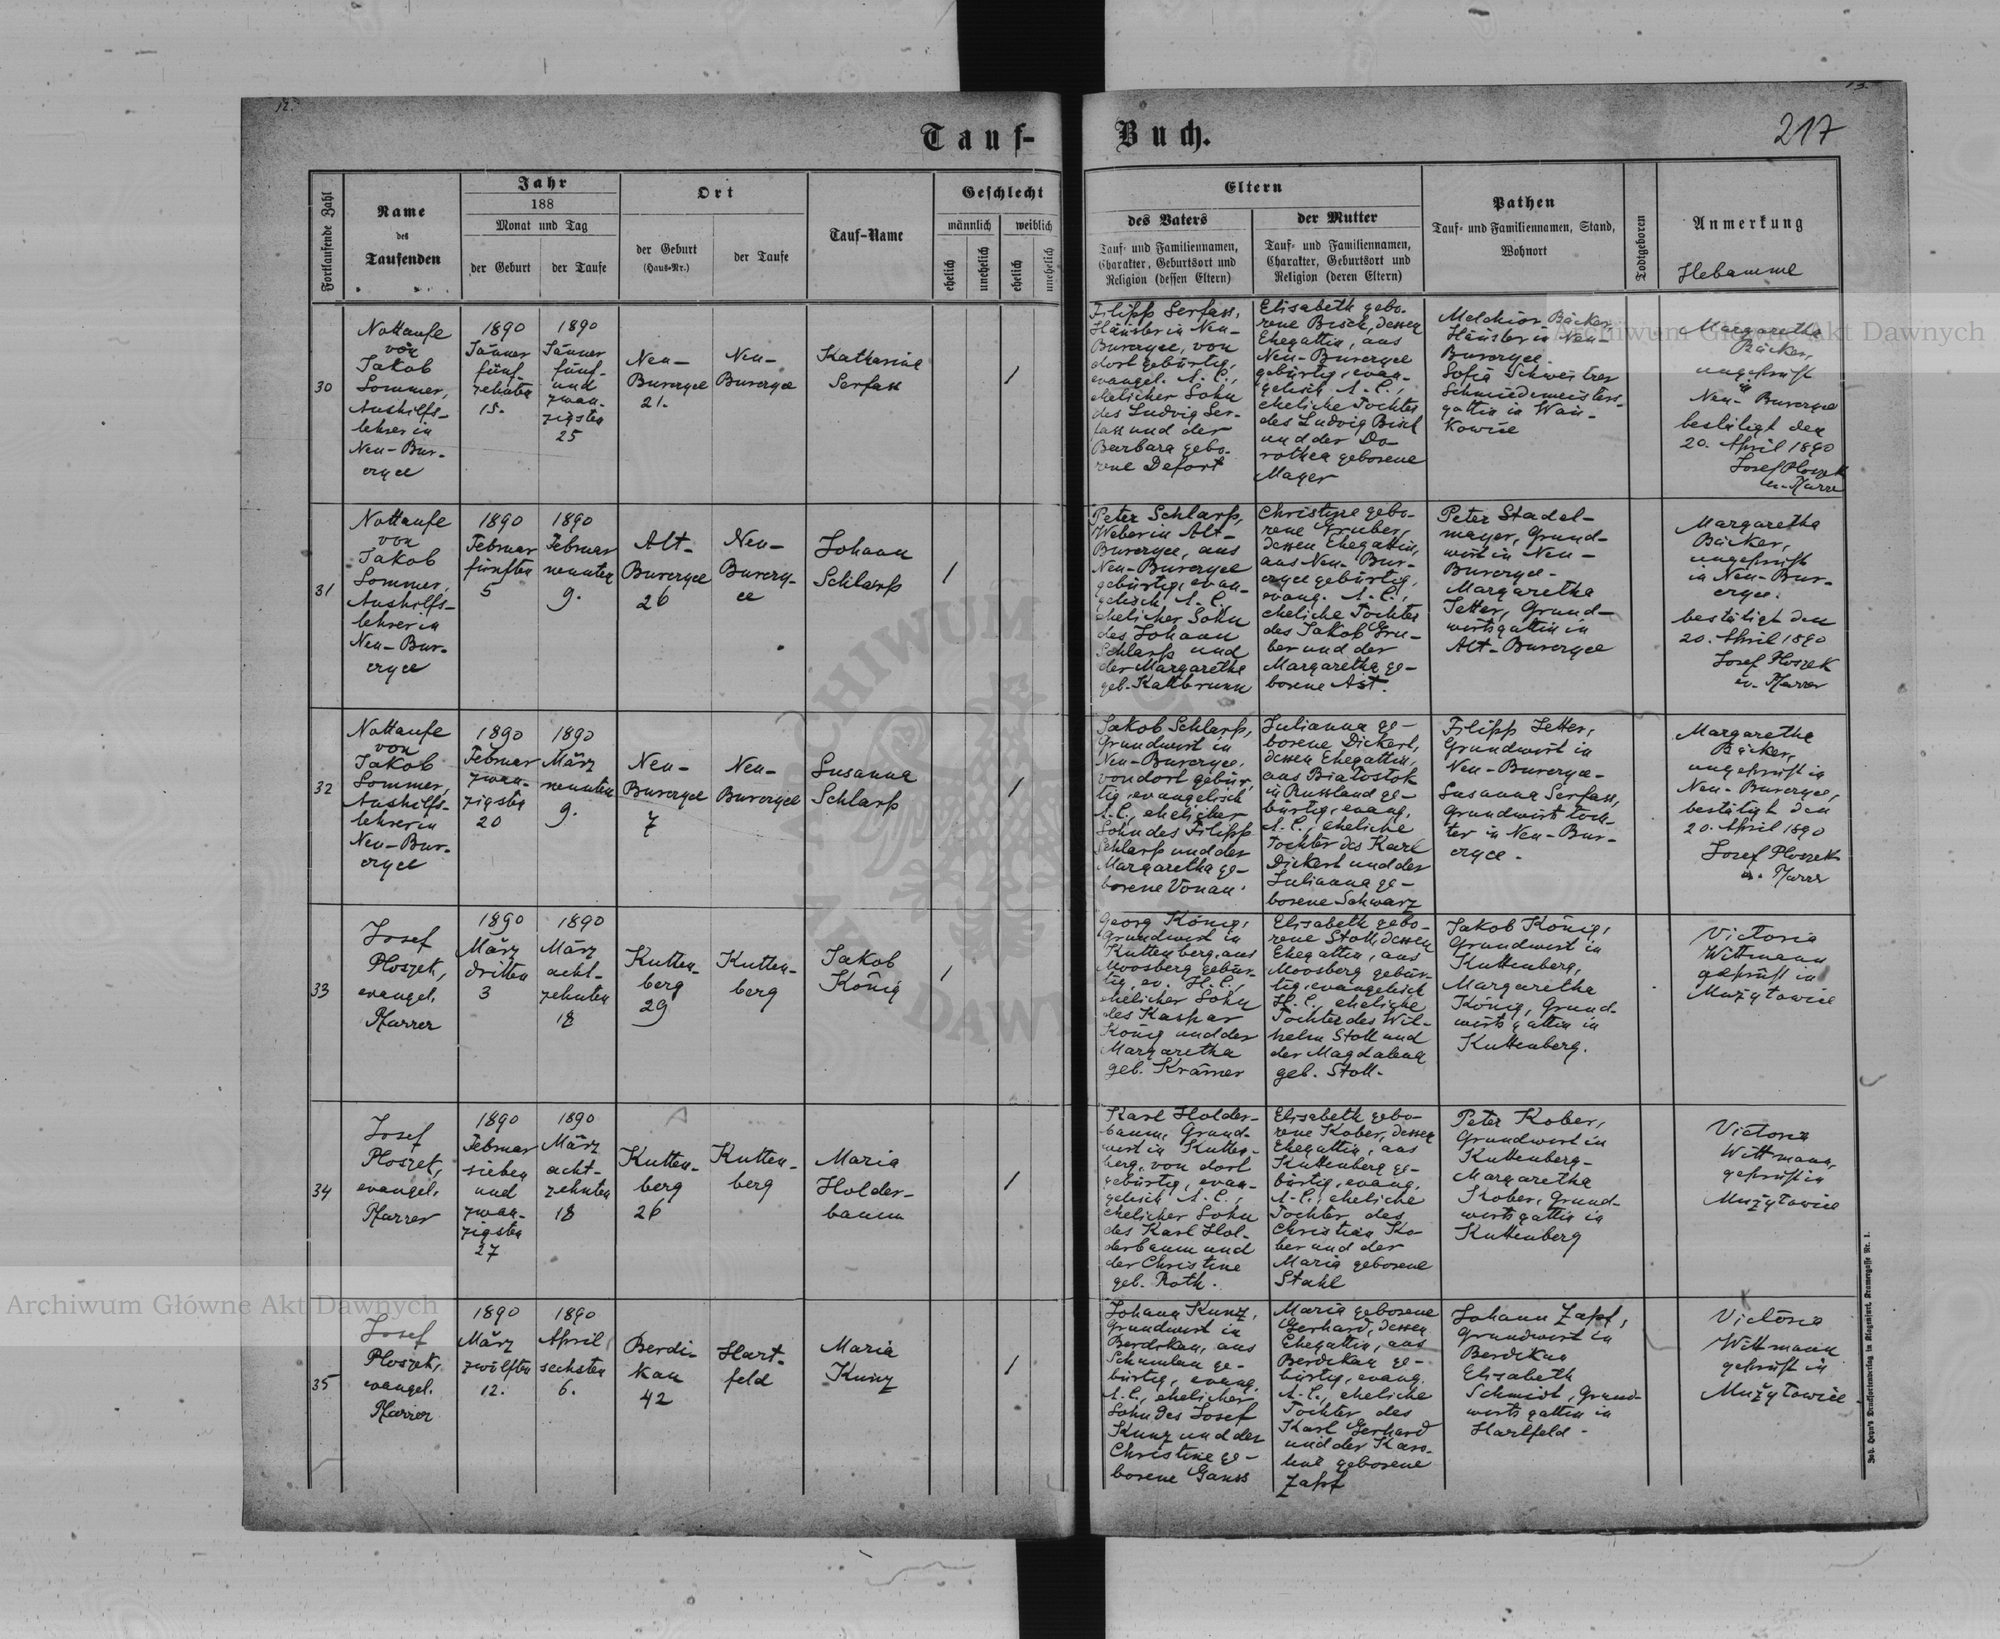 12.
13.
217
Tauf-
Buch.
Fortlaufende Zahl
Name
des
Taufenden
Jahr
188
Monat und Tag
der Geburt
der Taufe
Ort
der Geburt
(Haus-Nr.)
der Taufe
Tauf-Name
Geschlecht
männlich
weiblich
ehelich
unehelich
ehelich
unehelich
Eltern
des Vaters
Tauf- und Familiennamen,
Charakter, Geburtsort und
Religion (dessen Eltern)
der Mutter
Tauf- und Familiennamen,
Charakter, Geburtsort und
Religion (deren Eltern)
Pathen
Tauf- und Familiennamen, Stand,
Wohnort
Todtgeboren
Anmerkung
Hebamme
30
Nottaufe
von
Jakob
Sommer,
Aushilfs-
lehrer in
Neu-Bur-
czyce
1890
Jänner
fünf-
zehnten
15.
1890
Jänner
fünf-
und
zwan-
zigsten
25
Neu-
Burczyce
21.
Neu-
Burczyce
Katharine
Serfass
/
Filipp Serfass,
Häusler in Neu-
Burczyce, von
dort gebürtig,
evangel. A. C.,
ehelicher Sohn
des Ludvig Ser-
fass und der
Barbara gebo-
rene Defort
Elisabeth gebo-
rene Bisch, dessen
Ehegattin, aus
Neu-Burczyce
gebürtig, evan-
gelisch A. C.,
eheliche Tochter
des Ludvig Bisch
und der Do-
rothea geborene
Mayer
Melchior Bäcker,
Häusler in Neu-
Burczyce.
Sofia Schweitzer
Schmiedemeisters-
gattin in Wan-
kowice
Margaretha
Bäcker,
ungeprüft
in
Neu-Burczyce
bestätigt den
20. April 1890
Josef Ploszek
ev. Pfarrer
31
Nottaufe
von
Jakob
Sommer,
Aushilfs-
lehrer in
Neu-Bur-
czyce
1890
Februar
fünften
5
1890
Februar
neunten
9.
Alt-
Burczyce
26
Neu-
Burczy-
ce
Johann
Schlarp
/
Peter Schlarp,
Weber in Alt-
Burczyce, aus
Neu-Burczyce
gebürtig, evan-
gelisch, A. C.
ehelicher Sohn
des Johann
Schlarp und
der Margarethe
geb. Kaltbrunn
Christine gebo-
rene Gruber,
dessen Ehegattin,
aus Neu-Bur-
czyce gebürtig,
evang. A. C.,
eheliche Tochter
des Jakob Gru-
ber und der
Margaretha ge-
borene Ast.
Peter Stadel-
mayer, Grund-
wirt in Neu-
Burczyce-
Margaretha
Jetter, Grund-
wirtsgattin in
Alt-Burczyce
Margaretha
Bäcker,
ungeprüft
in Neu-Bur-
czyce.
bestätigt den
20. April 1890
Josef Ploszek
ev. Pfarrer
32
Nottaufe
von
Jakob
Sommer,
Aushilfs-
lehrer in
Neu-Bur-
czyce
1890
Februar
zwan-
zigsten
20
1890
März
neunten
9.
Neu-
Burczyce
7
Neu-
Burczyce
Susanna
Schlarp
/
Jakob Schlarp,
Grundwirt in
Neu-Burczyce,
von dort gebür-
tig, evangelisch
A. C., ehelicher
Sohn des Filipp
Schlarp und der
Margaretha ge-
borene Vonau.
Julianna ge-
borene Dickert,
dessen Ehegattin,
aus Białostok
in Russland ge-
bürtig, evang.
A. C., eheliche
Tochter des Karl
Dickert und der
Julianna ge-
borene Schwarz
Filipp Jetter,
Grundwirt in
Neu-Burczyce-
Susanna Serfass,
Grundwirt toch-
ter in Neu-Bur-
czyce.
Margaretha
Bäcker,
ungeprüft in
Neu-Burczyce,
bestätigt den
20. April 1890
Josef Ploszek
ev. Pfarrer
33
Josef
Ploszek,
evangel.
Pfarrer
1890
März
dritten
3
1890
März
acht-
zehnten
18
Kutten-
berg
29
Kutten-
berg
Jakob
König
/
Georg König,
Grundwirt in
Kuttenberg, aus
Moosberg gebür-
tig, ev. H. C.,
ehelicher Sohn
des Kaspar
König und der
Margaretha
geb. Krämer
Elisabeth gebo-
rene Stoll, dessen
Ehegattin, aus
Moosberg gebür-
tig, evangelisch
H. C., eheliche
Tochter des Wil-
helm Stoll und
der Magdalena
geb. Stoll.
Jakob König,
Grundwirt in
Kuttenberg,
Margaretha
König, Grund-
wirts gattin in
Kuttenberg.
Victoria
Wittmann
geprüft in
Mużyłowice
34
Josef
Ploszek,
evangel.
Pfarrer
1890
Februar
sieben
und
zwan-
zigsten
27
1890
März
acht-
zehnten
18
Kutten-
berg
26
Kutten-
berg
Maria
Holder-
baum
/
Karl Holder-
baum, Grund-
wirt in Kutten-
berg, von dort
gebürtig, evan-
gelisch A. C.,
ehelicher Sohn
des Karl Hol-
derbaum und
der Christine
geb. Roth.
Elisabeth gebo-
rene Kober, dessen
Ehegattin, aus
Kuttenberg ge-
bürtig, evang.
A. C., eheliche
Tochter des
Christian Ko-
ber und der
Maria geborene
Stahl
Peter Kober,
Grundwirt in
Kuttenberg-
Margaretha
Kober, Grund-
wirts gattin in
Kuttenberg
Victoria
Wittmann,
geprüft in
Mużyłowice
35
Josef
Ploszek,
evangel.
Pfarrer
1890
März
zwölften
12.
1890
April
sechsten
6.
Berdi-
kau
42
Hart-
feld
Maria
Kunz
/
Johann Kunz,
Grundwirt in
Berdikau, aus
Schumlau ge-
bürtig, evang.
A. C., ehelicher
Sohn des Josef
Kunz und der
Christine ge-
borene Gauss
Maria geborene
Gerhard, dessen
Ehegattin, aus
Berdikau ge-
bürtig, evang.
A. C., eheliche
Tochter des
Karl Gerhard
und der Karo-
line geborene
Zapf
Johann Zapf,
Grundwirt in
Berdikau
Elisabeth
Schmidt, Grund-
wirts gattin in
Hartfeld-
Victoria
Wittmann
geprüft in
Mużyłowice.
Joh. Heyn's Drucksortenverlag in Klagenfurt, Kramergasse Nr. 1.
Archiwum Główne Akt Dawnych
Archiwum Główne Akt Dawnych